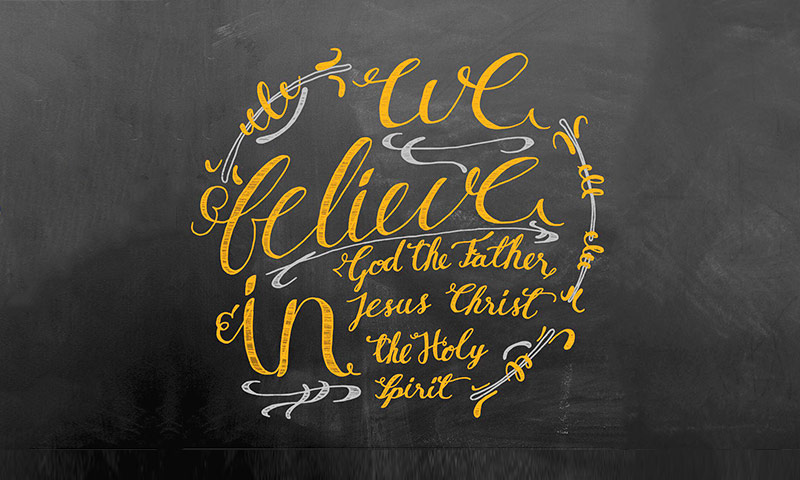 we
believe
in
God the Father,
Jesus Christ
the Holy
Spirit